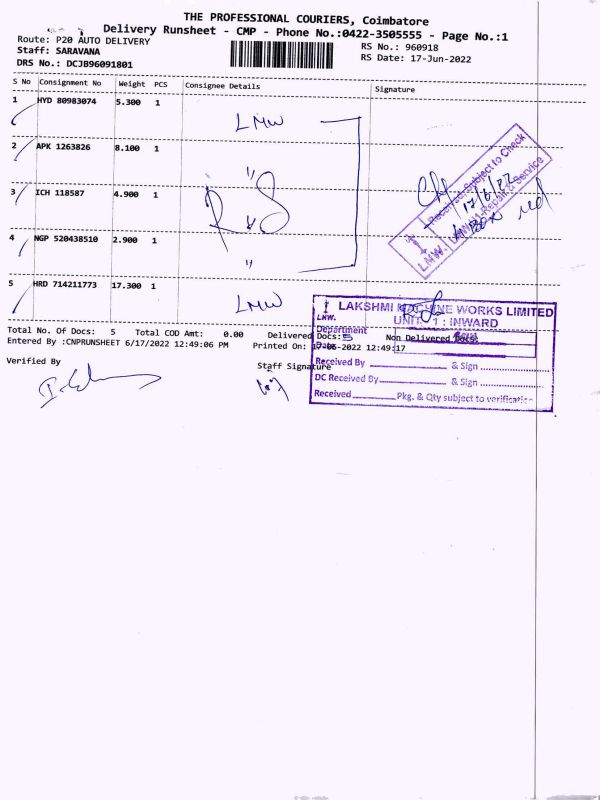 THE PROFESSIONAL COURIERS, Coimbatore
Delivery Runsheet - CMP - Phone No.:0422-3505555 - Page No.:1
Route: P20 AUTO DELIVERY
RS No.: 960918
Staff: SARAVANA
RS Date: 17-Jun-2022
DRS No.: DCJB96091801
S No Consignment No Weight PCS Consignee Details Signature
1 HYD 80983074 5.300 1 LMW
2 APK 1263826 8.100 1 "
3 ICH 118587 4.900 1
4 NGP 520438510 2.900 1 "
5 HRD 714211773 17.300 1 LMW
Received Subject to Check
17/6/22
LMW. LMW II-Repair & Service
LAKSHMI MACHINE WORKS LIMITED
LMW.
UNIT 1 : INWARD
Total No. Of Docs: 5 Total COD Amt: 0.00 Delivered Docs: 5 Non Delivered Docs:
Department
Entered By :CNPRUNSHEET 6/17/2022 12:49:06 PM Printed On: 17-06-2022 12:49:17
Date
Verified By
Staff Signature
Received By & Sign
DC Received By & Sign
Received Pkg. & Qty subject to verification